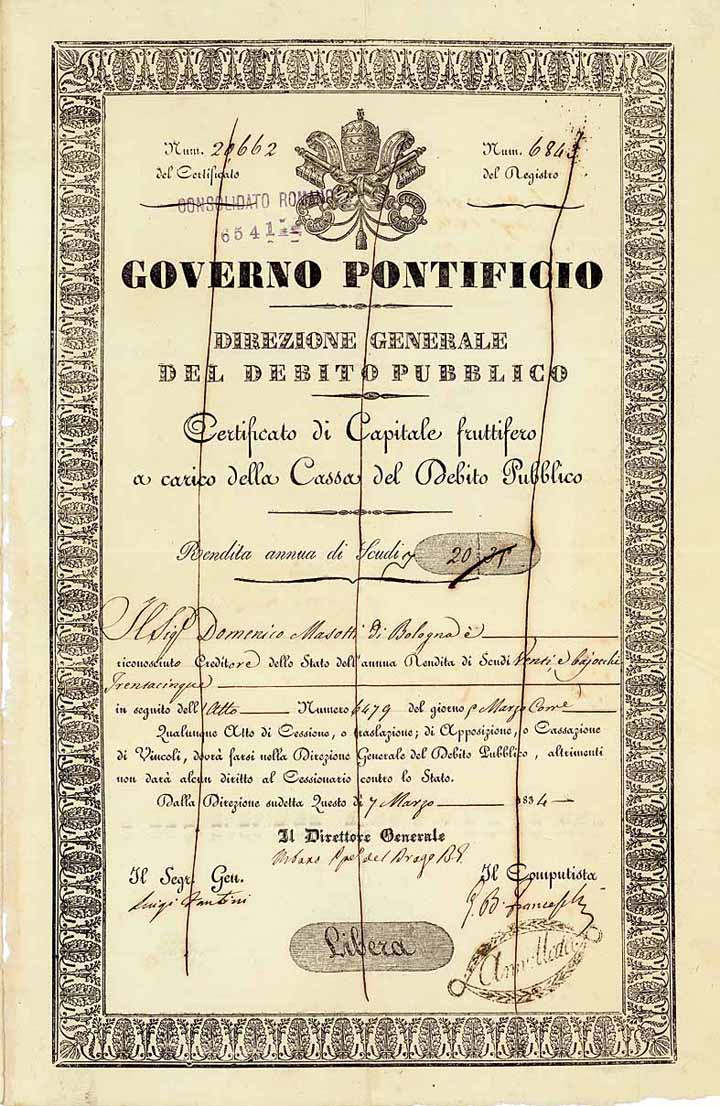 Num. 20662
del Certificato
Num. 6843
del Registro
CONSOLIDATO ROMANO
6541
GOVERNO PONTIFICIO
DIREZIONE GENERALE
DEL DEBITO PUBBLICO
Certificato di Capitale fruttifero
a carico della Cassa del Debito Pubblico
Rendita annua di Scudi 20 35
Il Sig.r Domenico Masotti di Bologna è
riconosciuto Creditore dello Stato dell'annua Rendita di Scudi Venti, e bajocchi
Trentacinque
in seguito dell'Atto Numero 6479 del giorno Marzo Corr.e
Qualunque Atto di Cessione, o traslazione; di Apposizione, o Cassazione
di Vincoli, dovrà farsi nella Direzione Generale del Debito Pubblico, altrimenti
non darà alcun diritto al Cessionario contro lo Stato.
Dalla Direzione sudetta Questo dì 7 Marzo 1834
Il Direttore Generale
Urbano del Drago
Il Segr. Gen.
Il Computista
Luigi Fantini
G. B.
Libera
Annullato